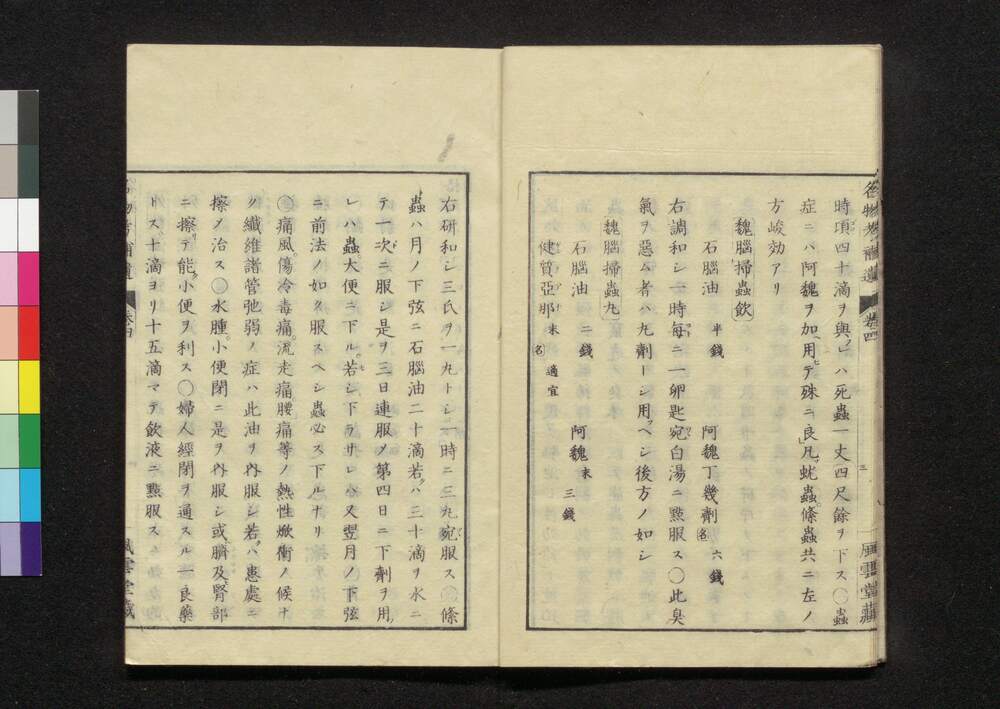 名物考補遺 卷四 三 風雲堂藏
時項四十滴ヲ與レハ死蟲一丈四尺餘ヲ下ス○蟲
症ニハ阿魏ヲ加用ヒテ殊ニ良凡蚘蟲條蟲共ニ左ノ
方峻効アリ
魏腦掃蟲飲
石腦油 半錢 阿魏丁幾劑名 六錢
右調和シ一時每ニ一卵匙宛白湯ニ㸃服ス○此臭
氣ヲ惡ム者ハ丸劑トシ用ヘシ後方ノ如シ
魏腦掃蟲丸
石腦油 二錢 阿魏末 三錢
健質亞那末名 適宜
右研和シ三氏ヲ一丸トシ一時ニ三丸宛服ス○條
蟲ハ月ノ下弦ニ石腦油二十滴若ハ三十滴ヲ水ニ
テ一次ニ服シ是ヲ三日連服ノ第四日ニ下劑ヲ用
レハ蟲大便ニ下ル若シ下ラサレハ又翌月ノ下弦
ニ前法ノ如ク服スヘシ蟲必ス下ルナリ
○痛風傷冷毒痛流走痛腰痛等ノ熱性焮衝ノ候ナ
ク纖維諸管弛弱ノ症ハ此油ヲ內服シ若ハ患處ニ
擦ノ治ス○水腫小便閉ニ是ヲ內服シ或臍及腎部
ニ擦テ能小便ヲ利ス○婦人經閉ヲ通スル一良藥
トス十滴ヨリ十五滴マテ飲液ニ㸃服ス
名物考補遺 卷四 風雲堂藏